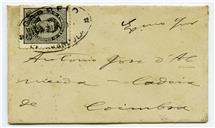 CORREIO
Exmo Snr
Antonio José d'Al
meida - Cadeia
de
Coimbra